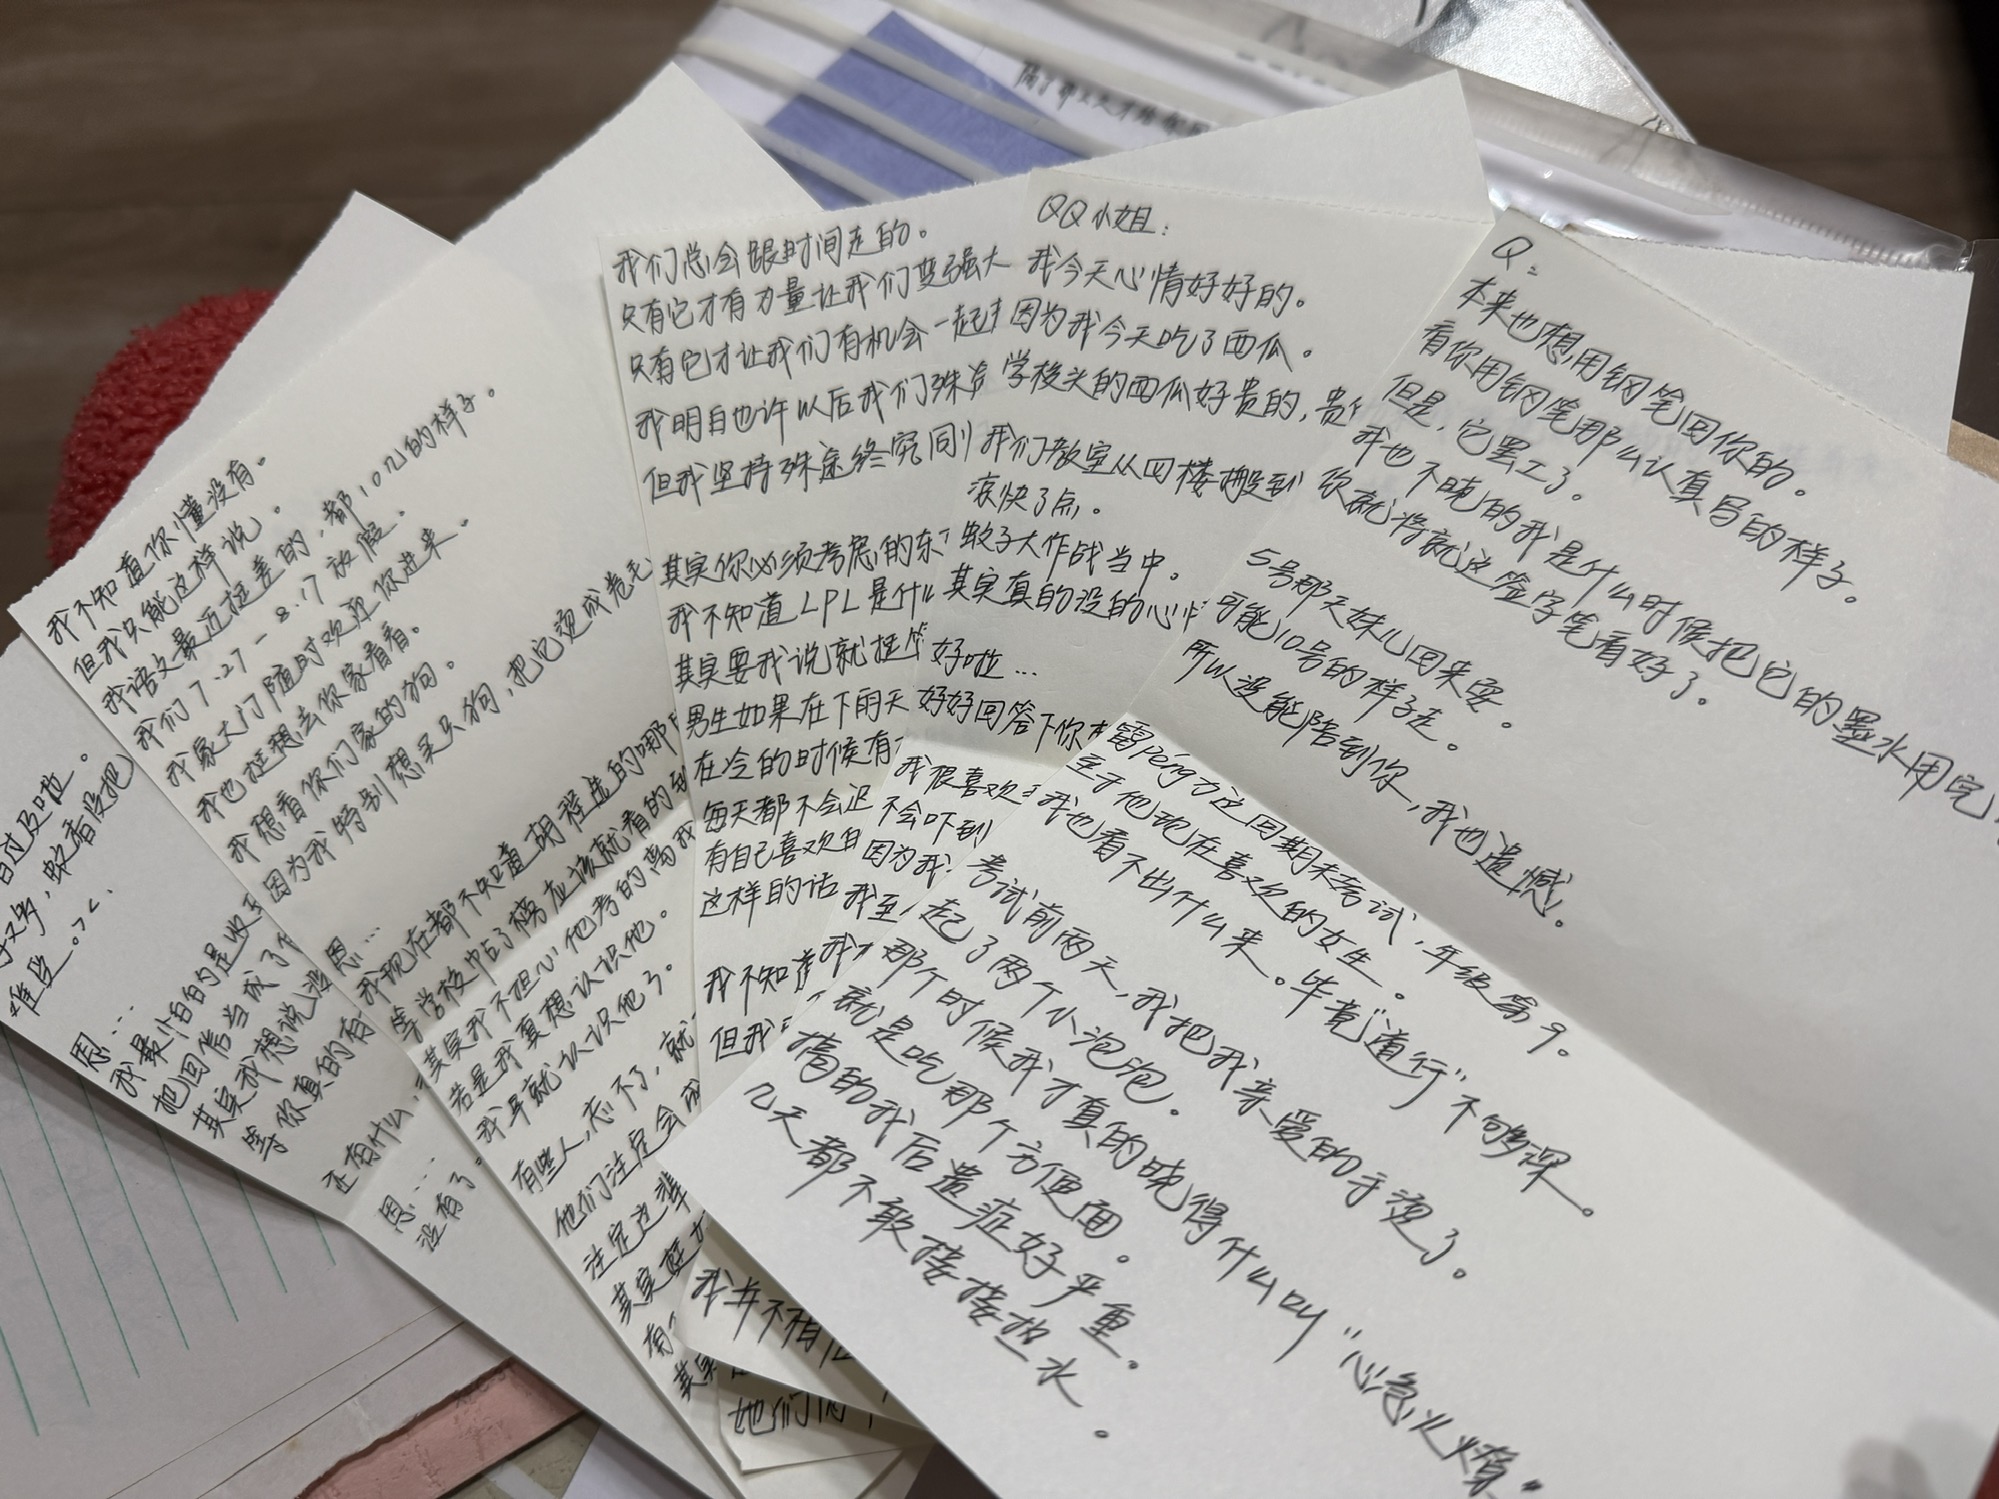 我不知道你懂没有。
但我只能这样说。
我语文最近挺差的，都101几的样子。
我们7.27-8.17放假。
我家大门随时欢迎你进来。
我也挺想去你家看看。
我想看你们家的狗。
因为我特别想买只狗，把它烫成卷毛
恩…
我现在都不知道胡程选的哪
等学校中贴了榜应该就看的到
其实我不担心他考的离我
若是我真想认识他。
我早就认识他了。
有些人，忘不了，就
他们注定会成
注定这辈
其实
有
其实
恩…
我最怕的是收到
把回信当成了
其实我想说
等你真的有
还有什么，
恩…
没有了。
我们总会跟时间走的。
只有它才有力量让我们变强大
只有它才让我们有机会一起
我明白也许以后我们殊途
但我坚持殊途终究同归
其实你必须考虑的东
我不知道LPL是什么
其实要我说就挺
男生如果在下雨天
在冷的时候有
每天都不会迟
有自己喜欢
这样的话
我不知道
但我
QQ小姐：
我今天心情好好的。
因为我今天吃了西瓜。
学校头的西瓜好贵的，贵
我们教室从四楼搬到
凉快了点。
蚊子大作战当中。
其实真的没的心情
好啦…
好好回答下你
我很喜欢
不会吓到
因为我
我至
我
Q：
本来也想用钢笔回你的。
看你用钢笔那么认真写的样子。
但是，它罢工了。
我也不晓的我是什么时候把它的墨水用完
你就将就这签字笔看好了。
5号那天妹儿回来耍。
可能10号的样子走。
所以没能陪到你，我也遗憾。
雷Péng力这回期末考试，年级第9。
至于他现在喜欢的女生。
我也看不出什么来。毕竟"道行"不够深。
考试前两天，我把我亲爱的手烫了。
起了两个小泡泡。
那个时候我才真的晓得什么叫"心急火燎"
就是吃那个方便面。
搞的我后遗症好严重。
几天都不敢接接热水。
我并不有
她们俩